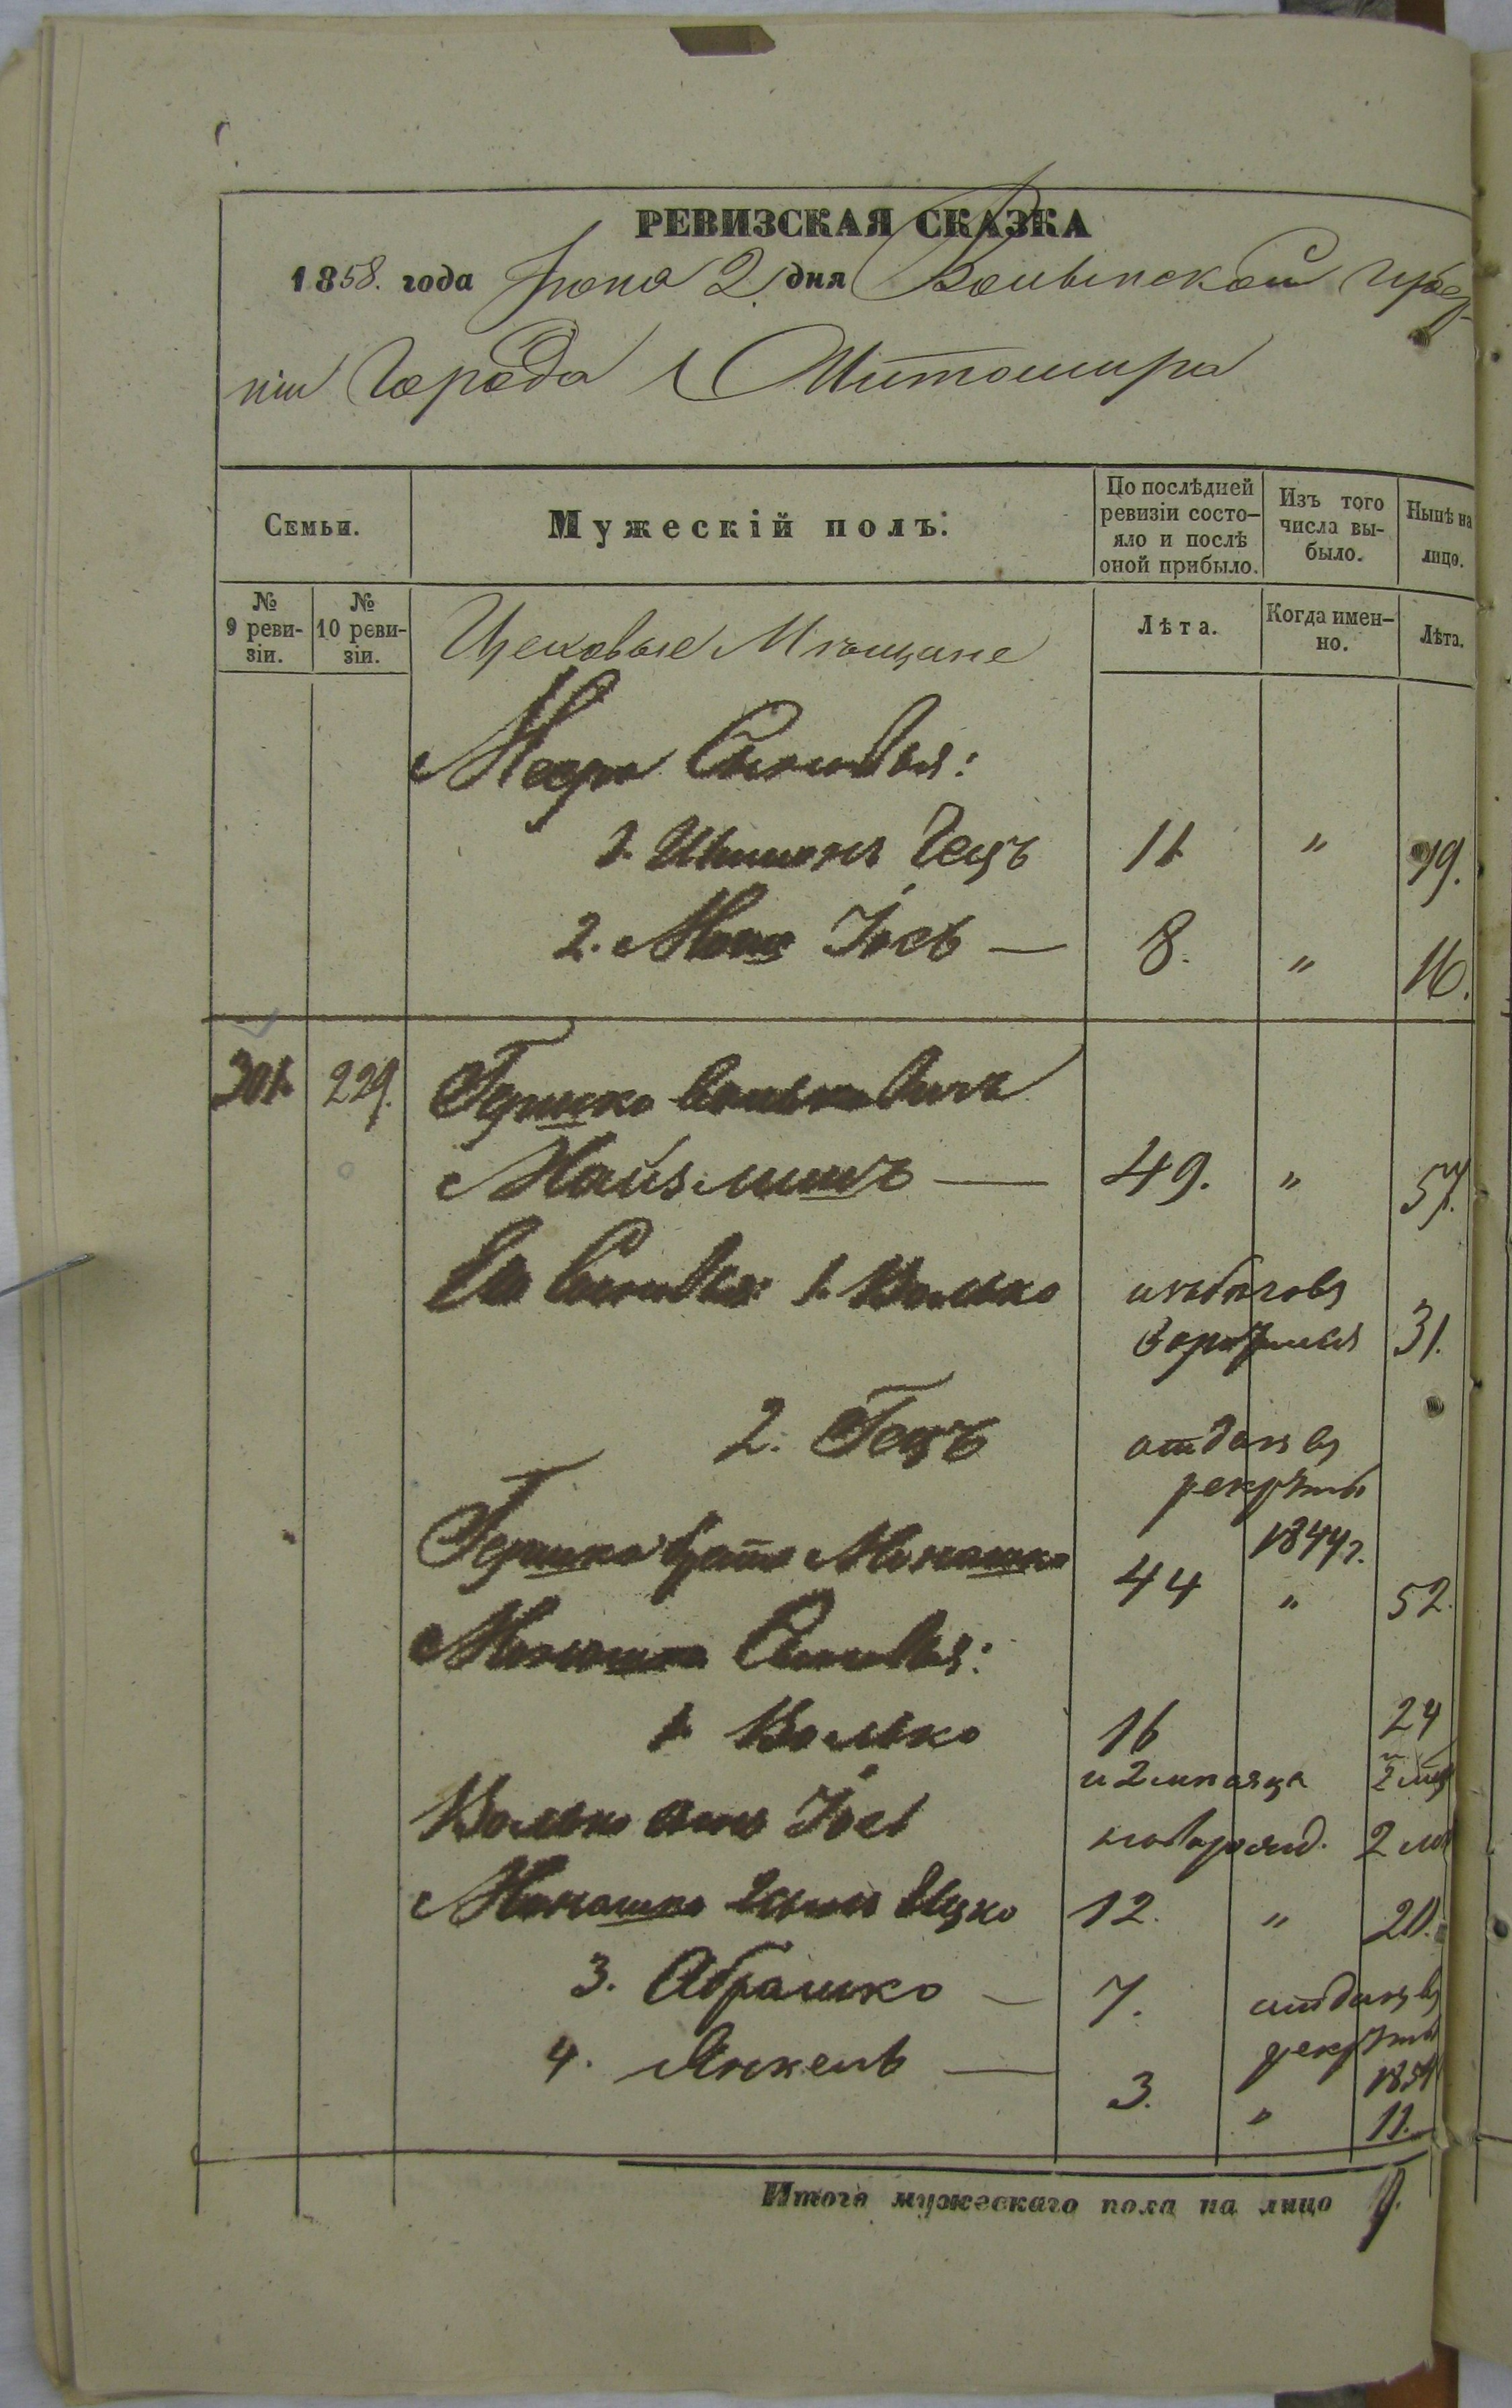 РЕВИЗСКАЯ СКАЗКА
1858. года Іюна 2 дня Волынской губер-
ніи Города Житомира
Семьи.
Мужескій полъ.
По послѣдней ревизіи состо-
яло и послѣ оной прибыло.
Изъ того числа вы-
было.
Нынѣ на лицо.
№ 9 реви-
зіи.
№ 10 реви-
зіи.
Цеховые Мѣщане
Лѣта.
Когда имен-
но.
Лѣта.
Меера Сыновья:
1. Шимонъ Гецъ 11 " 19.
2. Мошко Іось — 8. " 16.
301. 229. Гершко Вольковичъ
Майзлишъ — 49. " 57.
Его Сыновья: 1. Волько
изъ бѣговъ
возратился 31.
2. Гецъ отданъ въ
рекруты
1844г.
Гершка братъ Монашко 44 " 52.
Монашка Сыновья:
1. Волько 16 24
и 2 мѣсяца
Волько сынъ Іось новорожд. 2 м
Монашка 2 сынъ Ицко 12. " 20.
3. Абрашко — 7. отданъ въ
рекруты
185
4. Янкель — 3. " 11.
Итого мужескаго пола на лицо